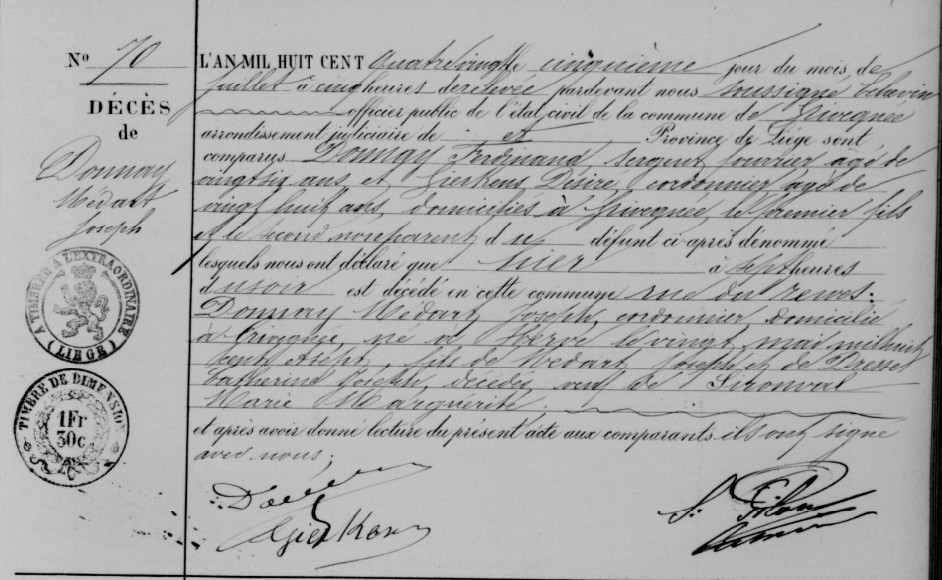 Nº 70
DÉCÈS
de
Donnay
Médart
Joseph
A TIMBRER A L'EXTRAORDINAIRE
(LIÉGE)
TIMBRE DE DIMENSION
1Fr
30c
L'AN MIL HUIT CENT quatrevingt le cinquième jour du mois de
juillet à cinq heures de relevée pardevant nous soussigné Echevin
officier public de l'état civil de la commune de Grivegnée
arrondissement judiciaire de et Province de Liége sont
comparus Donnay Ferdinand, sergent fourrier agé de
vingt six ans et Gierkens Désiré, cordonnier agé de
vingt huit ans, domiciliés à Grivegnée, le premier fils
et le second non parent du défunt ci après dénommé
lesquels nous ont déclaré que hier à sept heures
du soir est décédé en cette commune rue du
Donnay Médart Joseph, cordonnier domicilié
à Grivegnée, né à Herve le vingt mai mil huit
cent et sept, fils de Médart Joseph et de Dresse
Catherine Joseph, décédés, veuf de Sironval
Marie Marguerite.
et après avoir donné lecture du présent acte aux comparants ils ont signé
avec nous.